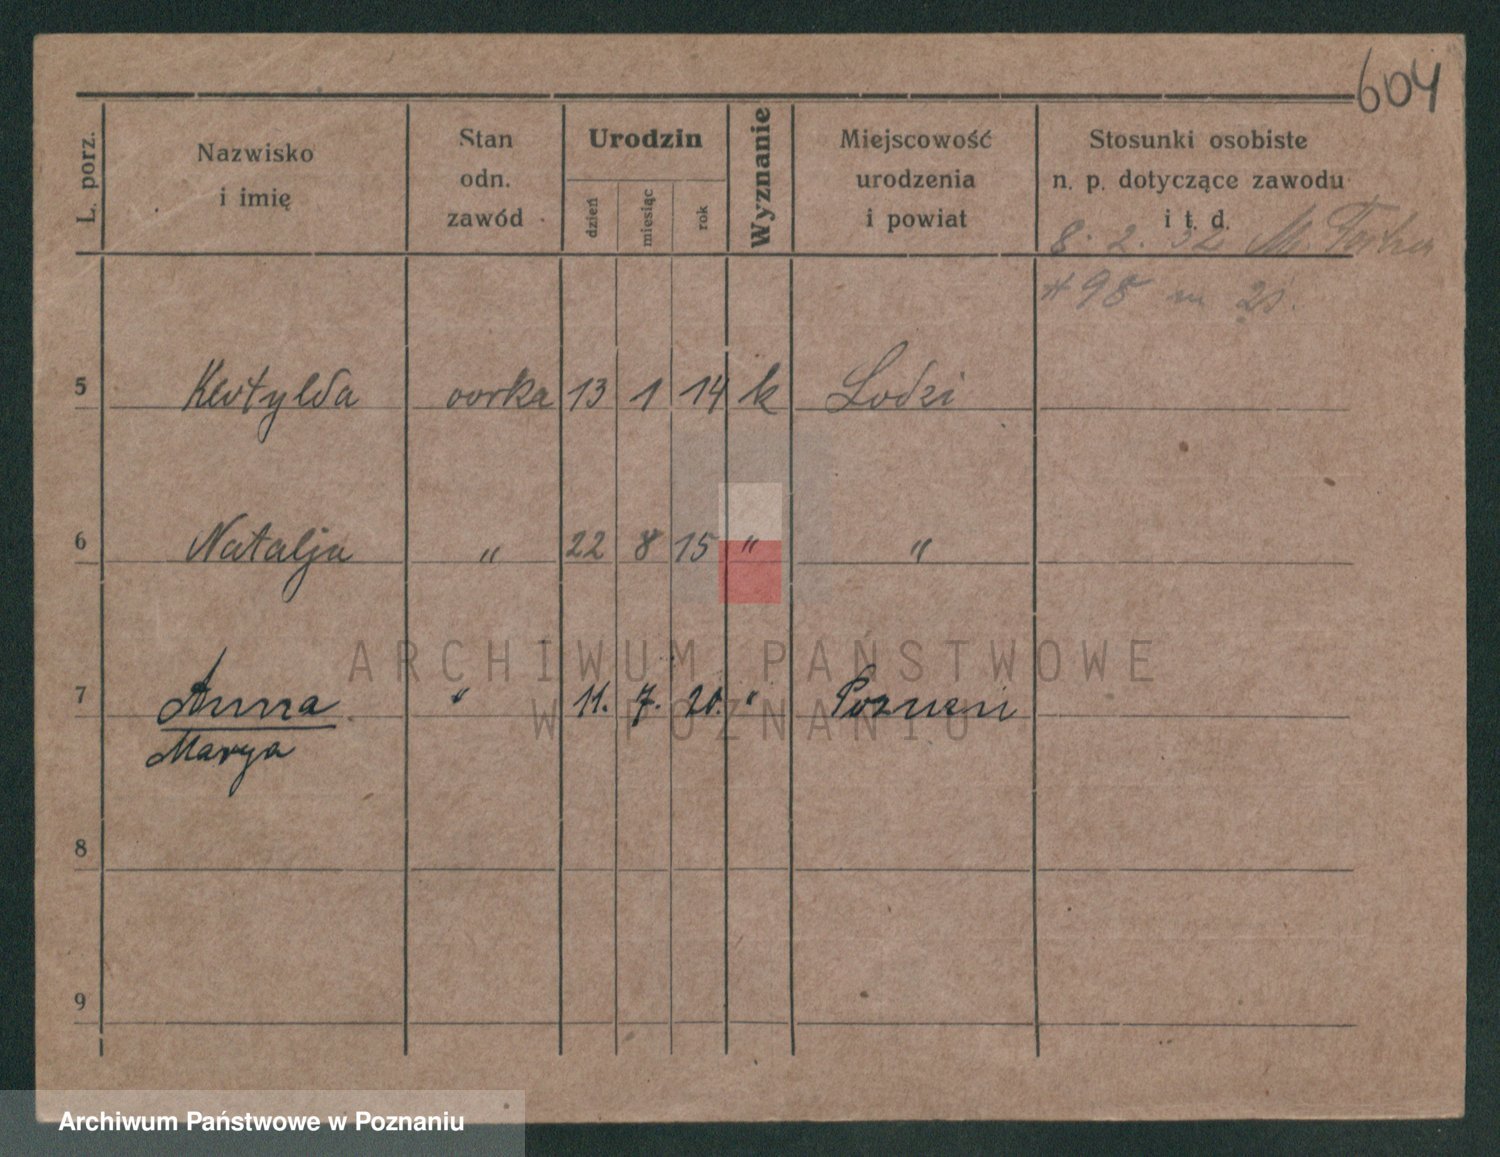 604
L. porz.
Nazwisko i imię
Stan odn. zawód
Urodzin
dzień
miesiąc
rok
Wyznanie
Miejscowość urodzenia i powiat
Stosunki osobiste n. p. dotyczące zawodu i t. d.
8. 2. 32 M.
98 m 21.
5 Klotylda 13 1 14 k Lodzi
6 Natalja " 22 8 15 " "
7 Anna " 11. 7. 20. " Poznań
Marya
8
9
ARCHIWUM PAŃSTWOWE
W POZNANIU
Archiwum Państwowe w Poznaniu